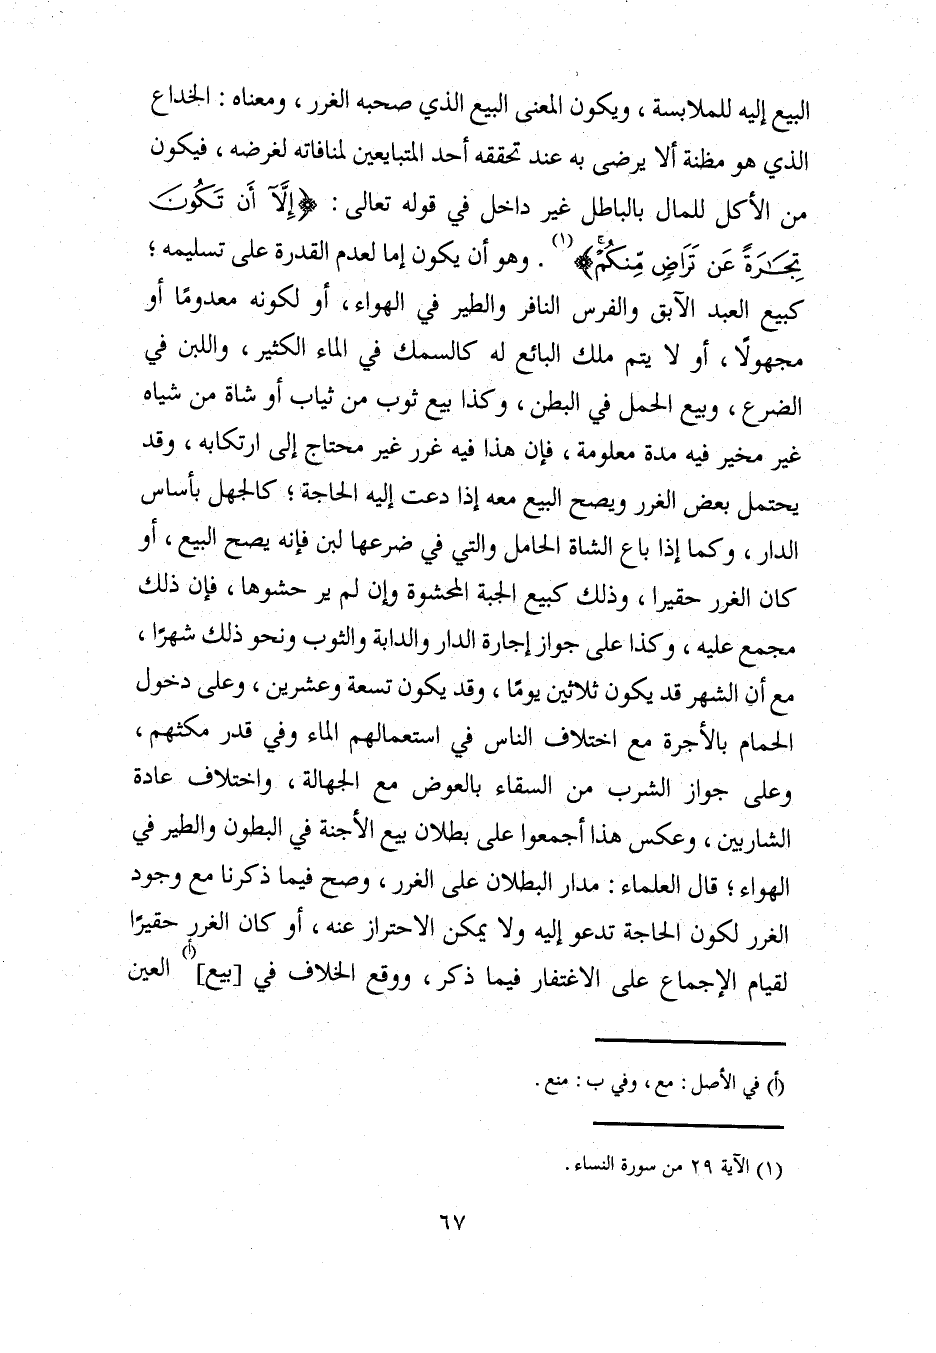 البيع إليه للملابسة ، ويكون المعنى البيع الذي صحبه الغرر ، ومعناه : الخداع
الذي هو مظنة ألا يرضى به عند تحققه أحد المتبايعين لمنافاته لغرضه ، فيكون
من الأكل للمال بالباطل غير داخل في قوله تعالى : ﴿إِلَّآ أَن تَكُونَ
تِجَـٰرَةً عَن تَرَاضٍ مِّنكُمْۚ﴾(١) . وهو أن يكون إما لعدم القدرة على تسليمه ؛
كبيع العبد الآبق والفرس النافر والطير في الهواء ، أو لكونه معدومًا أو
مجهولًا ، أو لا يتم ملك البائع له كالسمك في الماء الكثير ، واللبن في
الضرع ، وبيع الحمل في البطن ، وكذا بيع ثوب من ثياب أو شاة من شياه
غير مخير فيه مدة معلومة ، فإن هذا فيه غرر غير محتاج إلى ارتكابه ، وقد
يحتمل بعض الغرر ويصح البيع معه إذا دعت إليه الحاجة ؛ كالجهل بأساس
الدار ، وكما إذا باع الشاة الحامل والتي في ضرعها لبن فإنه يصح البيع ، أو
كان الغرر حقيرا ، وذلك كبيع الجبة المحشوة وإن لم ير حشوها ، فإن ذلك
مجمع عليه ، وكذا على جواز إجارة الدار والدابة والثوب ونحو ذلك شهرًا ،
مع أن الشهر قد يكون ثلاثين يومًا ، وقد يكون تسعة وعشرين ، وعلى دخول
الحمام بالأجرة مع اختلاف الناس في استعمالهم الماء وفي قدر مكثهم ،
وعلى جواز الشرب من السقاء بالعوض مع الجهالة ، واختلاف عادة
الشاربين ، وعكس هذا أجمعوا على بطلان بيع الأجنة في البطون والطير في
الهواء ؛ قال العلماء : مدار البطلان على الغرر ، وصح فيما ذكرنا مع وجود
الغرر لكون الحاجة تدعو إليه ولا يمكن الاحتراز عنه ، أو كان الغرر حقيرًا
لقيام الإجماع على الاغتفار فيما ذكر ، ووقع الخلاف في [بيع](أ) العين
(أ) في الأصل : مع ، وفي ب : منع .
(١) الآية ٢٩ من سورة النساء .
٦٧